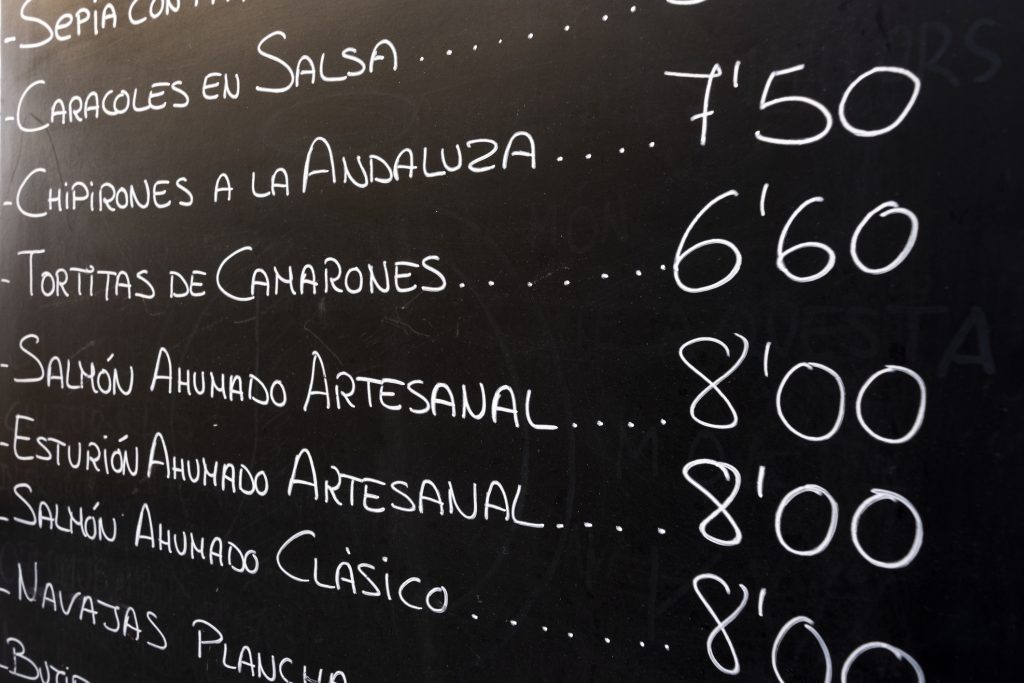 -Sepia con
-Caracoles en Salsa ......
-Chipirones a la Andaluza ..... 7'50
-Tortitas de Camarones ....... 6'60
-Salmón Ahumado Artesanal .... 8'00
-Esturión Ahumado Artesanal ..... 8'00
-Salmón Ahumado Clásico ....... 8'00
-Navajas Plancha